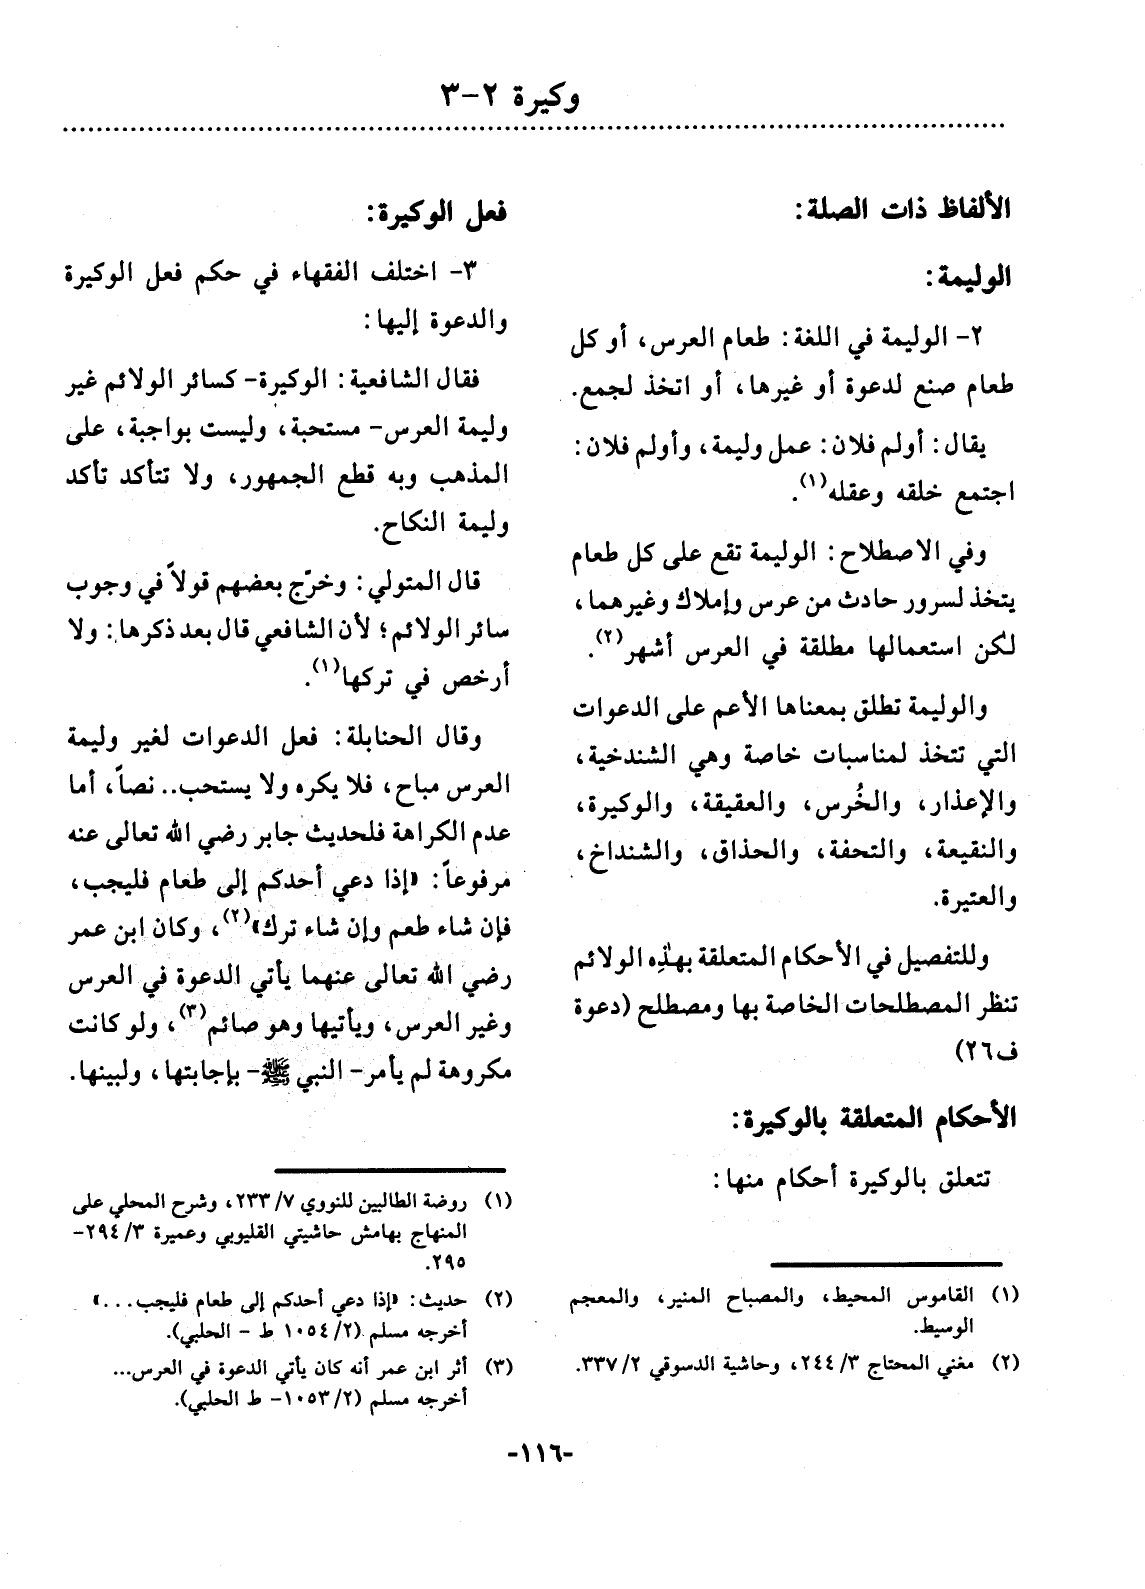 وكيرة ٢-٣
الألفاظ ذات الصلة:
الوليمة:
٢- الوليمة في اللغة: طعام العرس، أو كل
طعام صنع لدعوة أو غيرها، أو اتخذ لجمع.
يقال: أولم فلان: عمل وليمة، وأولم فلان:
اجتمع خلقه وعقله(١).
وفي الاصطلاح: الوليمة تقع على كل طعام
يتخذ لسرور حادث من عرس وإملاك وغيرهما،
لكن استعمالها مطلقة في العرس أشهر(٢).
والوليمة تطلق بمعناها الأعم على الدعوات
التي تتخذ لمناسبات خاصة وهي الشندخية،
والإعذار، والخُرس، والعقيقة، والوكيرة،
والنقيعة، والتحفة، والحذاق، والشنداخ،
والعتيرة.
وللتفصيل في الأحكام المتعلقة بهذِه الولائم
تنظر المصطلحات الخاصة بها ومصطلح (دعوة
ف٢٦)
الأحكام المتعلقة بالوكيرة:
تتعلق بالوكيرة أحكام منها:
(١) القاموس المحيط، والمصباح المنير، والمعجم
الوسيط.
(٢) مغني المحتاج ٣/ ٢٤٤، وحاشية الدسوقي ٢/ ٣٣٧.
فعل الوكيرة:
٣- اختلف الفقهاء في حكم فعل الوكيرة
والدعوة إليها:
فقال الشافعية: الوكيرة- كسائر الولائم غير
وليمة العرس- مستحبة، وليست بواجبة، على
المذهب وبه قطع الجمهور، ولا تتأكد تأكد
وليمة النكاح.
قال المتولي: وخرّج بعضهم قولاً في وجوب
سائر الولائم؛ لأن الشافعي قال بعد ذكرها: ولا
أرخص في تركها(١).
وقال الحنابلة: فعل الدعوات لغير وليمة
العرس مباح، فلا يكره ولا يستحب.. نصاً، أما
عدم الكراهة فلحديث جابر رضي الله تعالى عنه
مرفوعاً: «إذا دعي أحدكم إلى طعام فليجب،
فإن شاء طعم وإن شاء ترك»(٢)، وكان ابن عمر
رضي الله تعالى عنهما يأتي الدعوة في العرس
وغير العرس، ويأتيها وهو صائم(٣)، ولو كانت
مكروهة لم يأمر- النبي ﷺ- بإجابتها، ولبينها.
(١) روضة الطالبين للنووي ٧/ ٢٣٣، وشرح المحلي على
المنهاج بهامش حاشيتي القليوبي وعميرة ٣/ ٢٩٤-
٢٩٥.
(٢) حديث: «إذا دعي أحدكم إلى طعام فليجب...»
أخرجه مسلم (٢/ ١٠٥٤ ط - الحلبي).
(٣) أثر ابن عمر أنه كان يأتي الدعوة في العرس...
أخرجه مسلم (٢/ ١٠٥٣- ط الحلبي).
-١١٦-